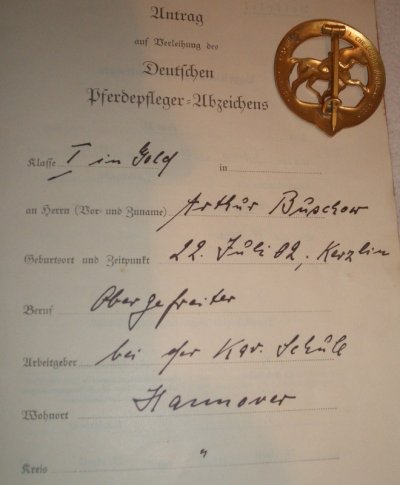 Antrag
auf Verleihung des
Deutschen
Pferdepfleger=Abzeichens
Klasse I in Gold in
an Herrn (Vor- und Zuname) Arthur Büschow
Geburtsort und Zeitpunkt 22. Juli 02, Kerzlin
Beruf Obergefreiter
Arbeitgeber bei der Kav. Schule
Wohnort Hannover
Kreis "